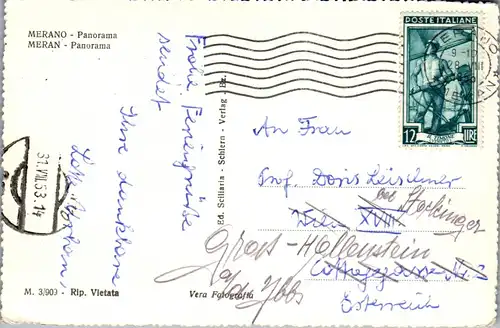 MERANO - Panorama
MERAN - Panorama
Frohe Feriengrüße
sendet
Ihre dankbare
M. 3/909 - Rip. Vietata
Ed. Sciliaria - Schlern - Verlag, Bz.
Vera Fotografia
POSTE ITALIANE
12 LIRE
31.VIII.53.14
An Frau
Prof. Doris Leischner
bei Stockinger
Wien XVIII.
Gross-Hollenstein
a/d. Ybbs
Österreich